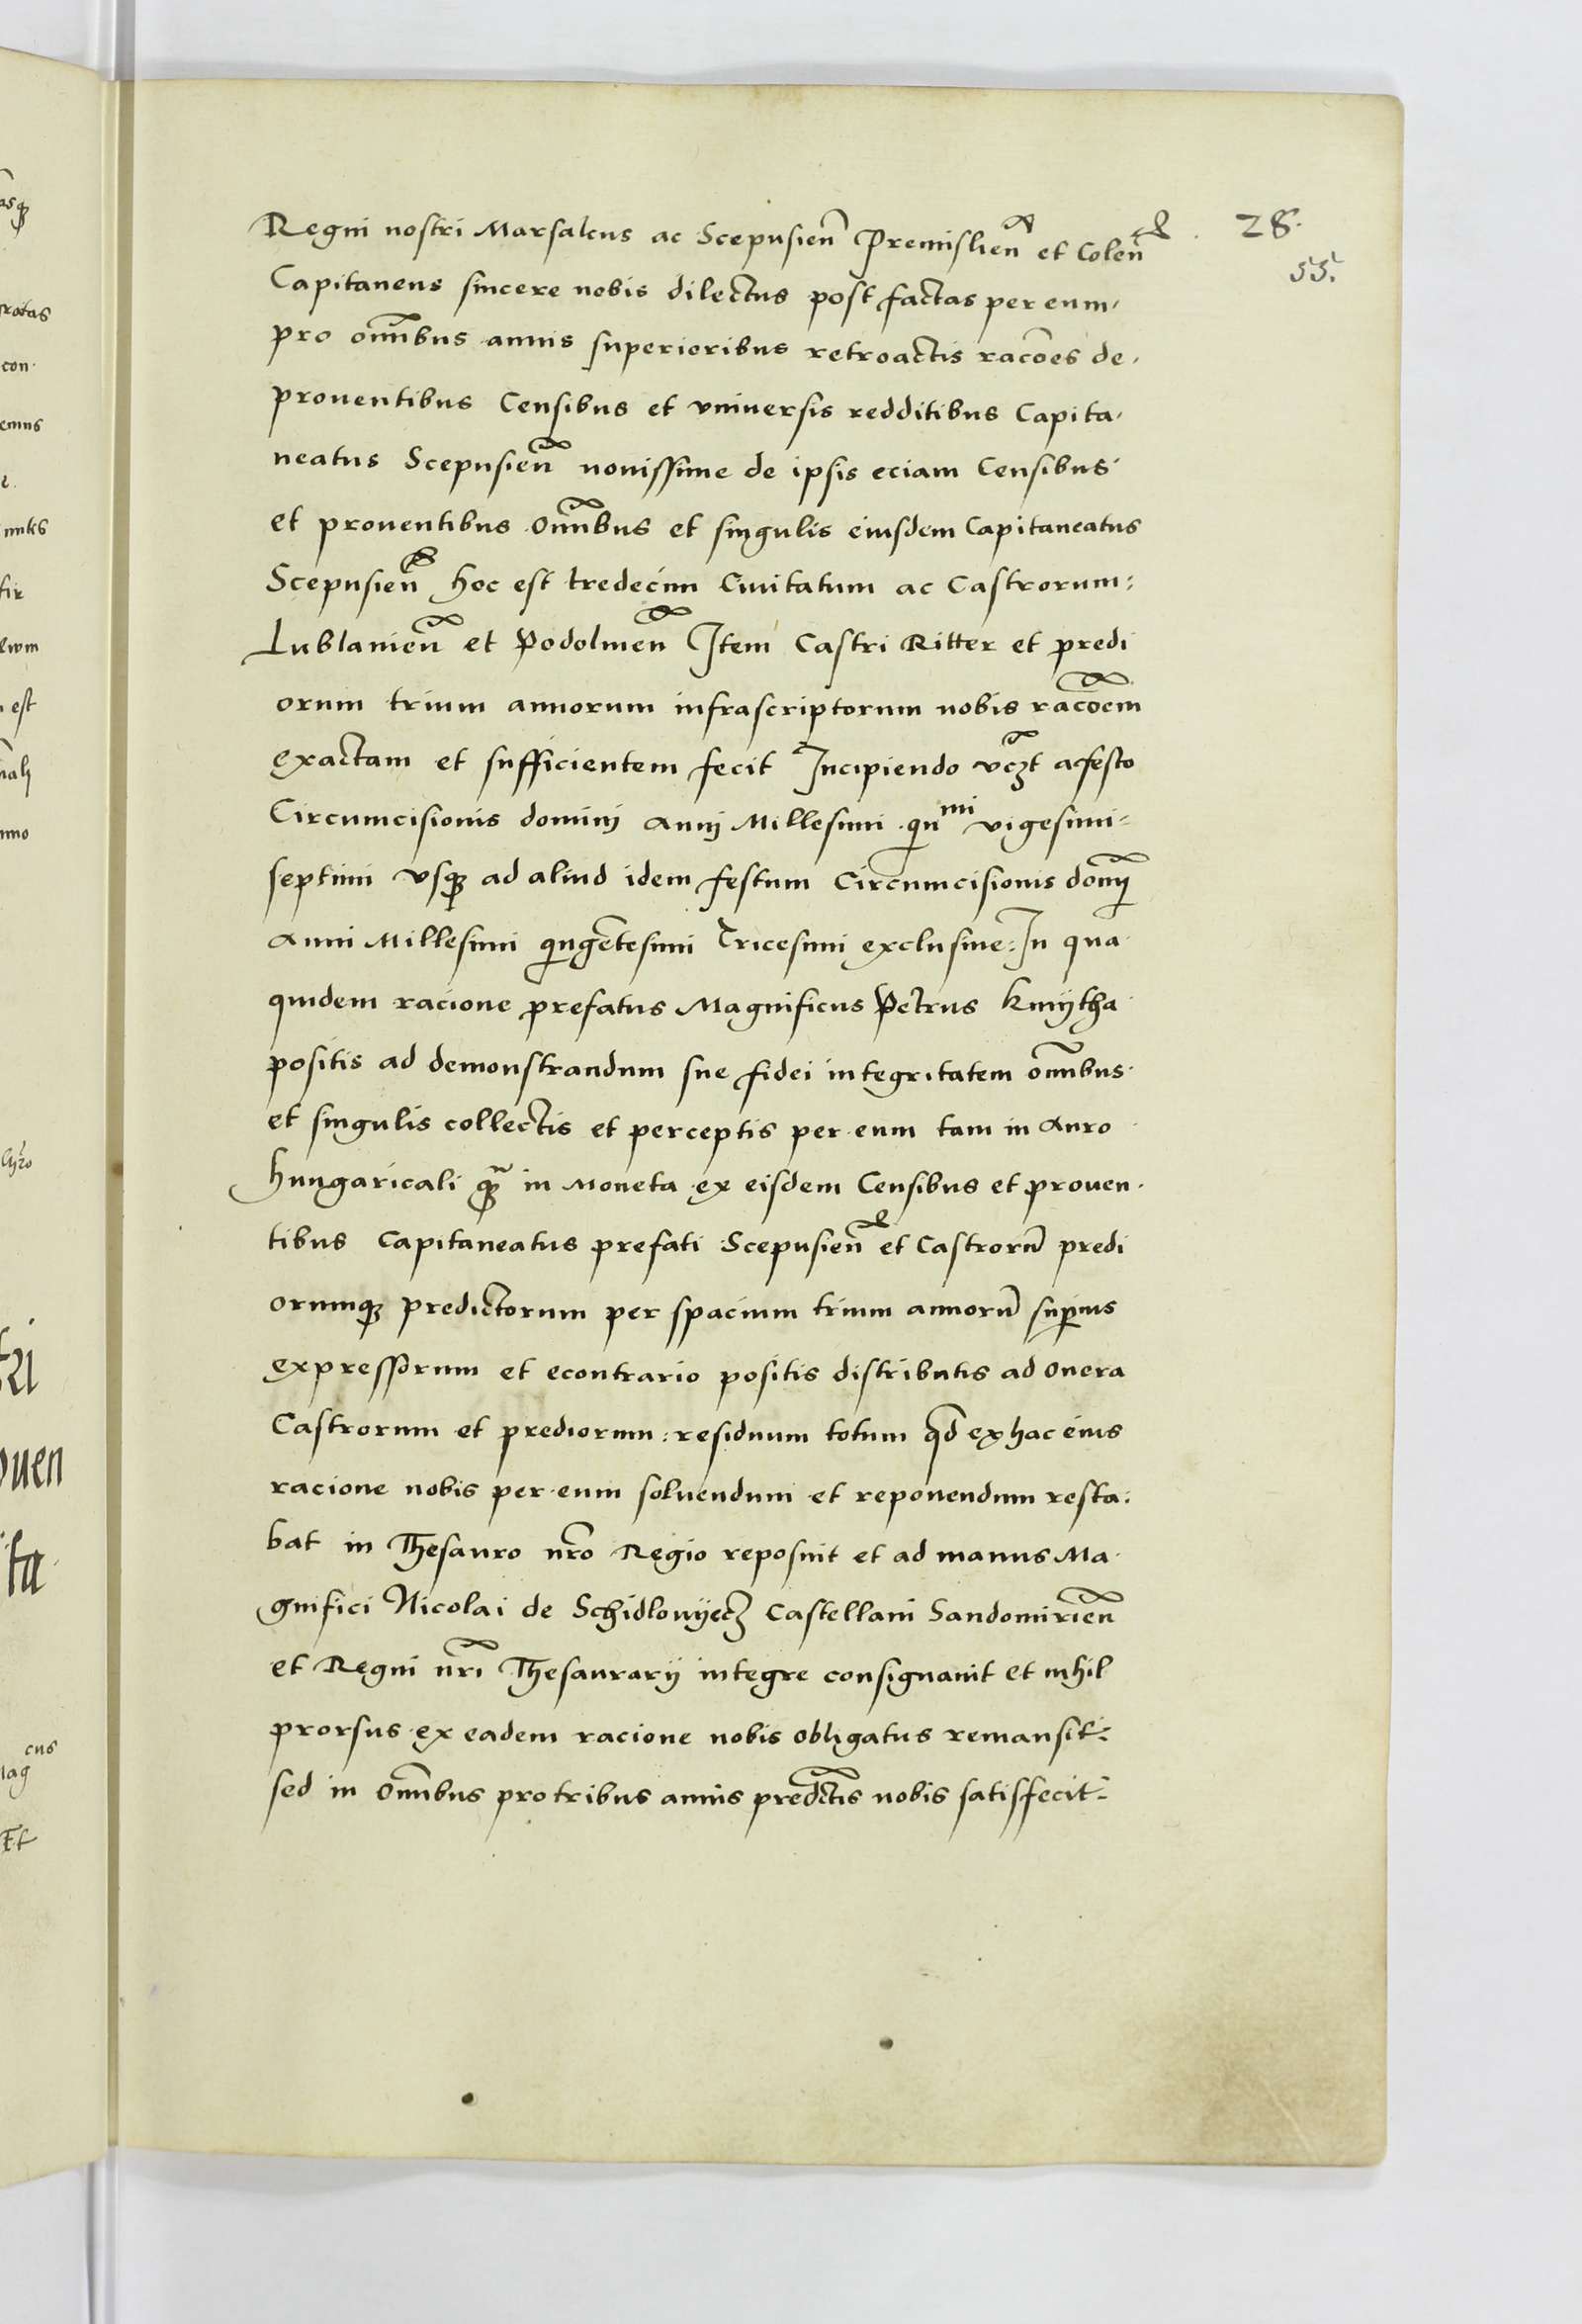 28.
55.
Regni nostri Marsalcus ac Scepusien̄ Premislien̄ et Colen̄
Capitaneus sincere nobis dilectus post factas per eum
pro om̄ibus annis superioribus retroactis rac̄oes de
prouentibus Censibus et vniuersis redditibus Capita,
neatus Scepusien̄ nouissime de ipsis eciam Censibus
et prouentibus om̄ibus et singulis eiusdem Capitaneatus
Scepusien̄ hoc est tredecim Ciuitatum ac Castrorum:
Lublanien̄ et Podolinen̄ Item Castri Ritter et predi
orum trium annorum infrascriptorum nobis rac̄oem
exactam et sufficientem fecit Incipiendo vcꝫt a festo
Circumcisionis dominj Annj Millesimi qin^mi vigesimi-
septimi vsqꝫ ad aliud idem festum Circumcisionis dom̄j
Anni Millesimi qinge̅tesimi Tricesimi exclusiue: In qua
quidem racione prefatus Magnificus Petrus Kmÿtha
positis ad demonstrandum sue fidei integritatem om̄ibus
et singulis collectis et perceptis per eum tam in Auro
hungaricali qꝫ̄ in Moneta ex eisdem Censibus et prouen,
tibus Capitaneatus prefati Scepusien̄ et Castrorū predi
orumqꝫ predictorum per spacium trium annorū supius
expressorum et econtrario positis distributis ad onera
Castrorum et prediorum: residuum totum qd̄ ex hac eius
racione nobis per eum soluendum et reponendum resta:
bat in Thesauro nr̄o Regio reposuit et ad manus Ma
gnifici Nicolai de Schidlovÿecꝫ Castellani Sandomirien̄
et Regni nr̄i Thesaurarÿ integre consignauit et nihil
prorsus ex eadem racione nobis obligatus remansit:
sed in om̄ibus pro tribus annis predc̄tis nobis satisfecit-